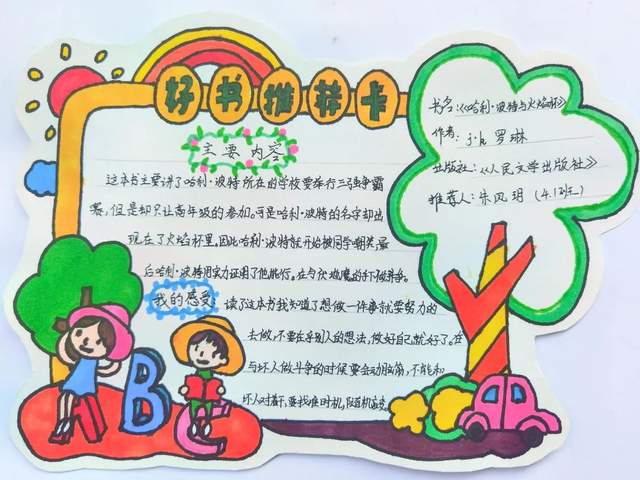 好书推荐卡
书名:《哈利·波特与火焰杯》
作者: j·k 罗琳
出版社:《人民文学出版社》
推荐人: 朱凤玥 (4.1班)
主要内容
这本书主要讲了哈利·波特所在的学校要举行三强争霸
赛,但是却只让高年级的参加。可是哈利·波特的名字却出
现在了火焰杯里,因此哈利·波特就开始被同学嘲笑,最
后哈利·波特用实力证明了他能行。在与伏地魔的
我的感受: 读了这本书我知道了想做一件事就要努力的
去做,不要在乎别人的想法,做好自己就好了。在
与坏人做斗争的时候要会动脑筋,不能和
坏人对着干,要找准时机,随机应变。
ABC